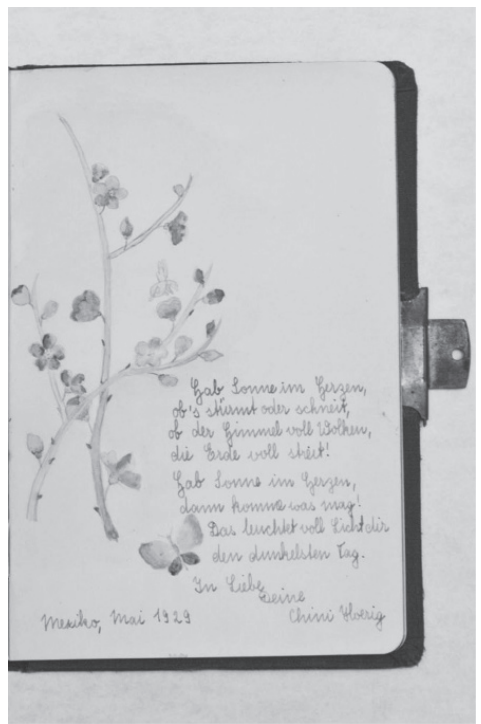 Hab Sonne im Herzen,
ob's stürmt oder schneit,
ob der Himmel voll Wolken,
die Erde voll streit!
Hab Sonne im Herzen,
dann komme was mag!
Das leuchtet voll Licht dir
den dunkelsten Tag.
In Liebe
Deine
Chini
Mexiko, Mai 1929